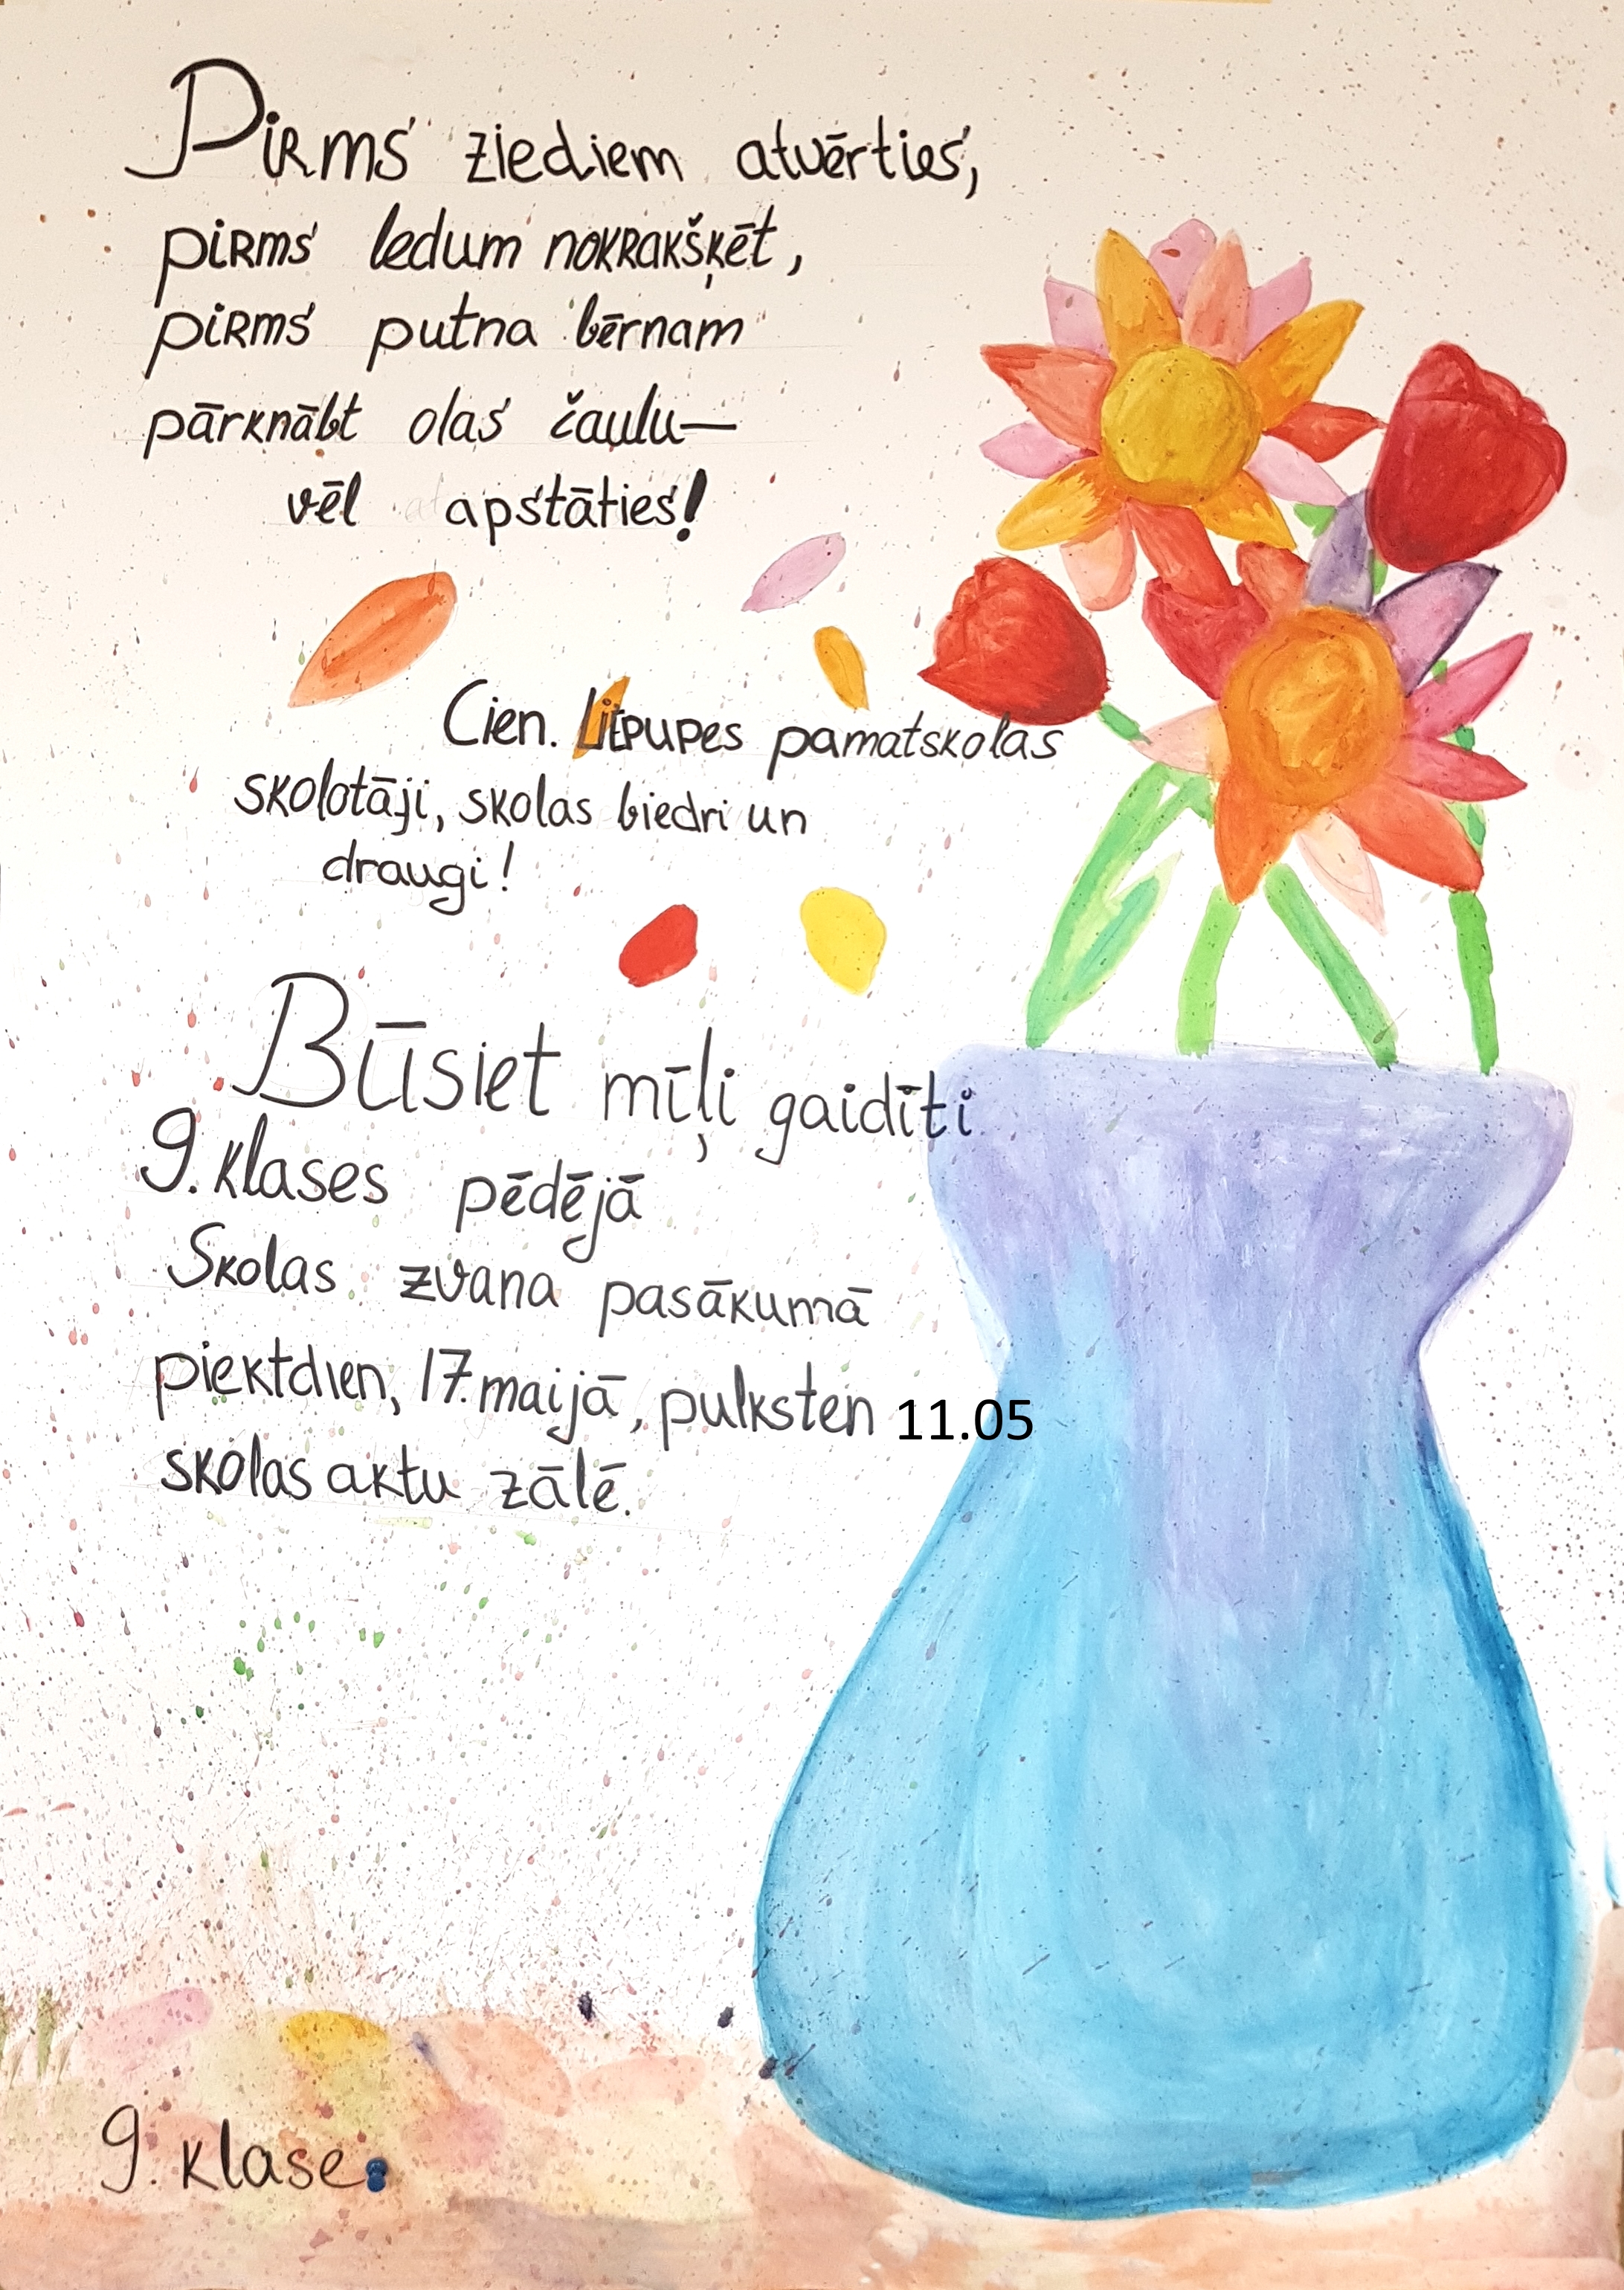 Pirms ziediem atvērties,
pirms ledum nokrakšķēt,
pirms putna bērnam
pārknābt olas čaulu—
vēl apstāties!
Cien. Liepupes pamatskolas
skolotāji, skolas biedri un
draugi!
Būsiet mīļi gaidīti
9. klases pēdējā
Skolas zvana pasākumā
piektdien, 17. maijā, pulksten 11.05
skolas aktu zālē.
9. klase.